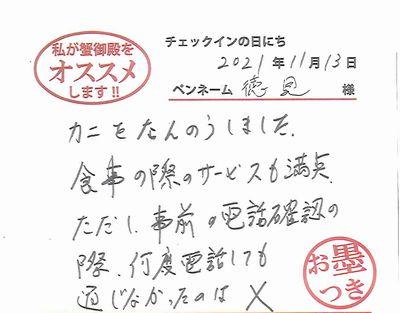 私が蟹御殿を
オススメ
します!!
チェックインの日にち
2021年11月13日
ペンネーム 徳見 様
カニをたんのうしました.
食事の際のサービスも満点.
ただし、事前の電話確認の
際、何度電話しても
通じなかったのは ×
お墨
つき